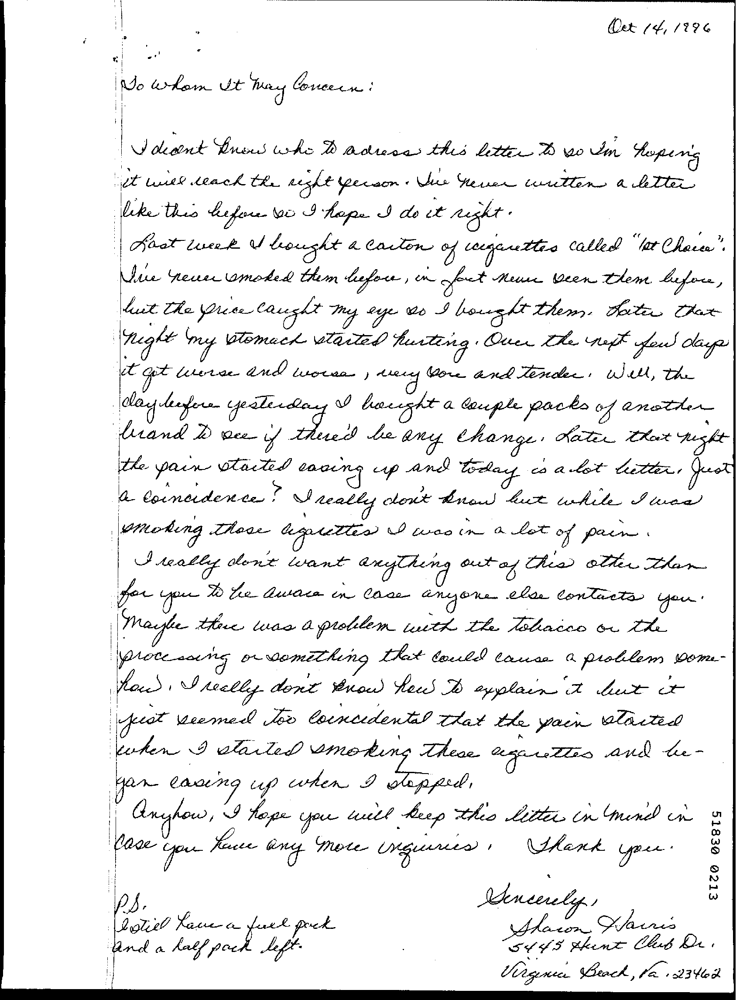 Oct 14, 1996
To Whom It May Concern:
I dident know who to adress this letter to so I'm hoping
it will reach the right person. I've never written a letter
like this before so I hope I do it right.
Last week I bought a carton of cigarettes called "1st Choice".
I've never smoked them before, in fact never seen them before,
but the price caught my eye so I bought them. Later that
night my stomach started hurting. Over the next few days
it got worse and worse, very sore and tender. Well, the
day before yesterday I bought a couple packs of another
brand to see if there'd be any change. Later that night
the pain started easing up and today is a lot better. Just
a coincidence? I really don't know but while I was
smoking those cigarettes I was in a lot of pain.
I really don't want anything out of this other than
for you to be aware in case anyone else contacts you.
Maybe there was a problem with the tobacco or the
processing or something that could cause a problem some-
how. I really don't know how to explain it but it
just seemed too coincidental that the pain started
when I started smoking these cigarettes and be-
gan easing up when I stopped.
Anyhow, I hope you will keep this letter in mind in
case you have any more inquiries. Thank you.
Sincerely,
Sharon Harris
5445 Hunt Club Dr.
Virginia Beach, Va. 23462
P.S.
I still have a full pack
and a half pack left.
51830 0213